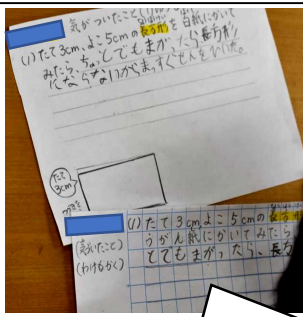 気がついたこと
(1)たて3cm、よこ5cmの長方形を白紙にかいて
みたら、ちょっとでもまがったら長方形
にならないからまっすぐせんをひいた。
たて
3cm
(気づいたこと)
(わけもかく)
(1)たて3cmよこ5cmの長方
うがん紙にかいてみたら
とてもまがったら、長方